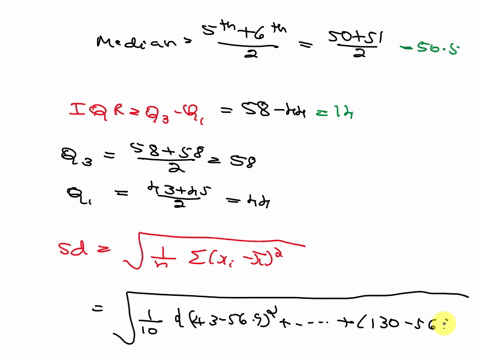 Median = 5th + 6th / 2 = 50+51 / 2 - 50.5
IQR = Q3 - Q1 = 58 - 44 = 14
Q3 = 58+58 / 2 = 58
Q1 = 43+45 / 2 = 44
Sd = √ 1/n Σ(xi - x̄)²
= √ 1/10 { (43-56.9)² + ---- + (130-56.